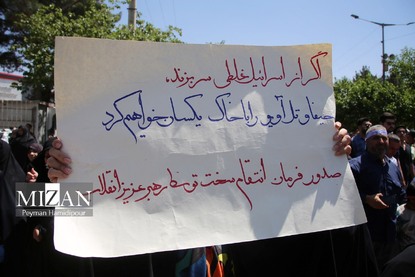 اگر از اسرائیل غلطی سر بزند،
حیفا و تل آویو را با خاک یکسان خواهیم کرد
صدور فرمان انتقام سخت توسط رهبر عزیز انقلاب
MIZAN
Peyman Hamidipour